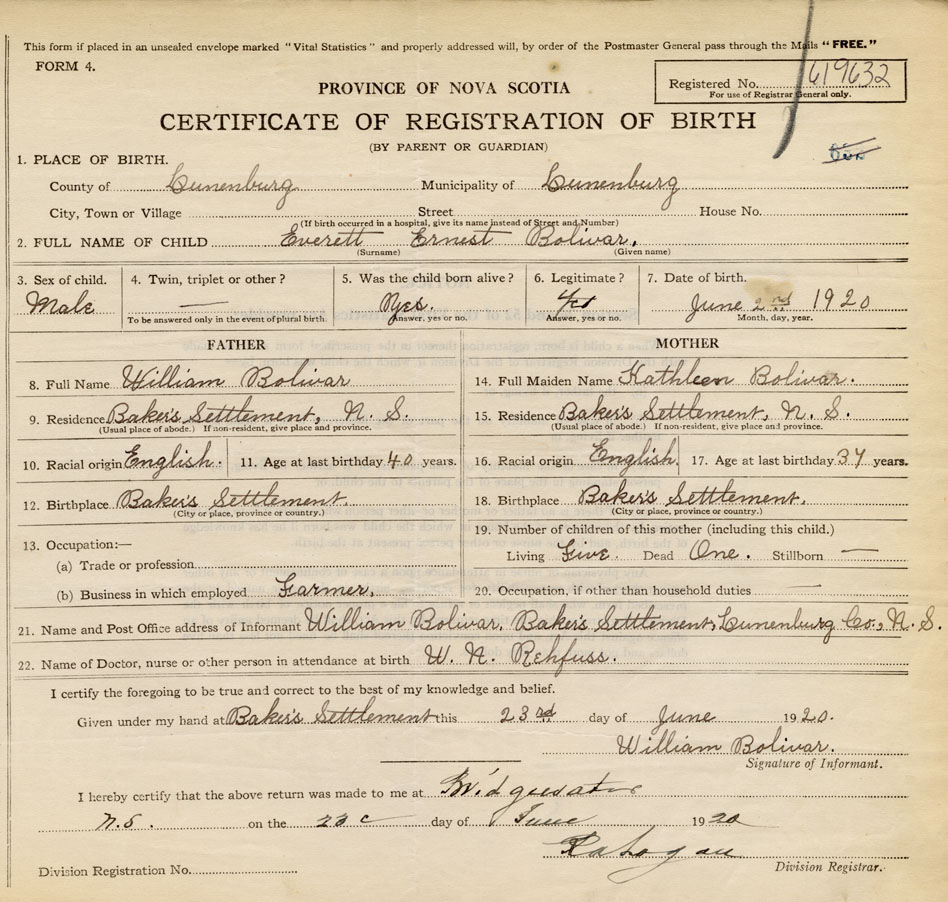 This form if placed in an unsealed envelope marked "Vital Statistics" and properly addressed will, by order of the Postmaster General pass through the Mails "FREE."
FORM 4.
Registered No. 619632
For use of Registrar General only.
PROVINCE OF NOVA SCOTIA
CERTIFICATE OF REGISTRATION OF BIRTH
(BY PARENT OR GUARDIAN)
1. PLACE OF BIRTH.
County of Lunenburg Municipality of Lunenburg
City, Town or Village Street House No.
(If birth occurred in a hospital, give its name instead of Street and Number)
2. FULL NAME OF CHILD Everett Ernest Bolivar.
(Surname) (Given name)
3. Sex of child. 4. Twin, triplet or other? 5. Was the child born alive? 6. Legitimate? 7. Date of birth.
Male — Yes. Yes June 2nd 1920
To be answered only in the event of plural birth. Answer, yes or no. Answer, yes or no. Month, day, year.
FATHER MOTHER
8. Full Name William Bolivar 14. Full Maiden Name Kathleen Bolivar.
9. Residence Baker's Settlement, N. S. 15. Residence Baker's Settlement, N. S.
(Usual place of abode.) If non-resident, give place and province. (Usual place of abode.) If non-resident, give place and province.
10. Racial origin English. 11. Age at last birthday 40 years. 16. Racial origin English. 17. Age at last birthday 37 years.
12. Birthplace Baker's Settlement. 18. Birthplace Baker's Settlement.
(City or place, province or country.) (City or place, province or country.)
13. Occupation:— 19. Number of children of this mother (including this child.)
(a) Trade or profession Living Five. Dead One. Stillborn —
(b) Business in which employed Farmer. 20. Occupation, if other than household duties —
21. Name and Post Office address of Informant William Bolivar, Baker's Settlement, Lunenburg Co., N. S.
22. Name of Doctor, nurse or other person in attendance at birth W. N. Rehfuss.
I certify the foregoing to be true and correct to the best of my knowledge and belief.
Given under my hand at Baker's Settlement this 23rd day of June 1920.
William Bolivar.
Signature of Informant.
I hereby certify that the above return was made to me at Bridgewater
N.S. on the 23 day of June 1920
Division Registration No. Division Registrar.